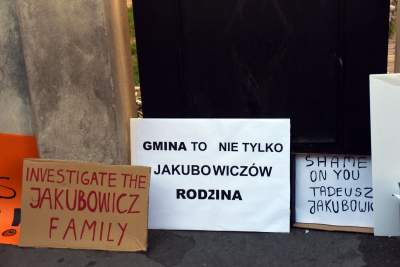 INVESTIGATE THE
JAKUBOWICZ
FAMILY
GMINA TO NIE TYLKO
JAKUBOWICZÓW
RODZINA
SHAME
ON YOU
TADEUSZ